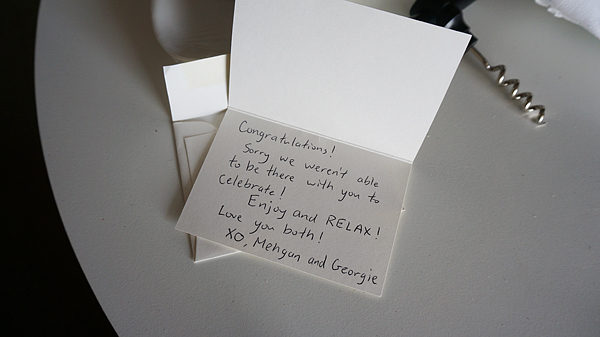 Congratulations!
Sorry we weren't able
to be there with you to
Celebrate!
Enjoy and RELAX!
Love you both!
XO, Mehgan and Georgie